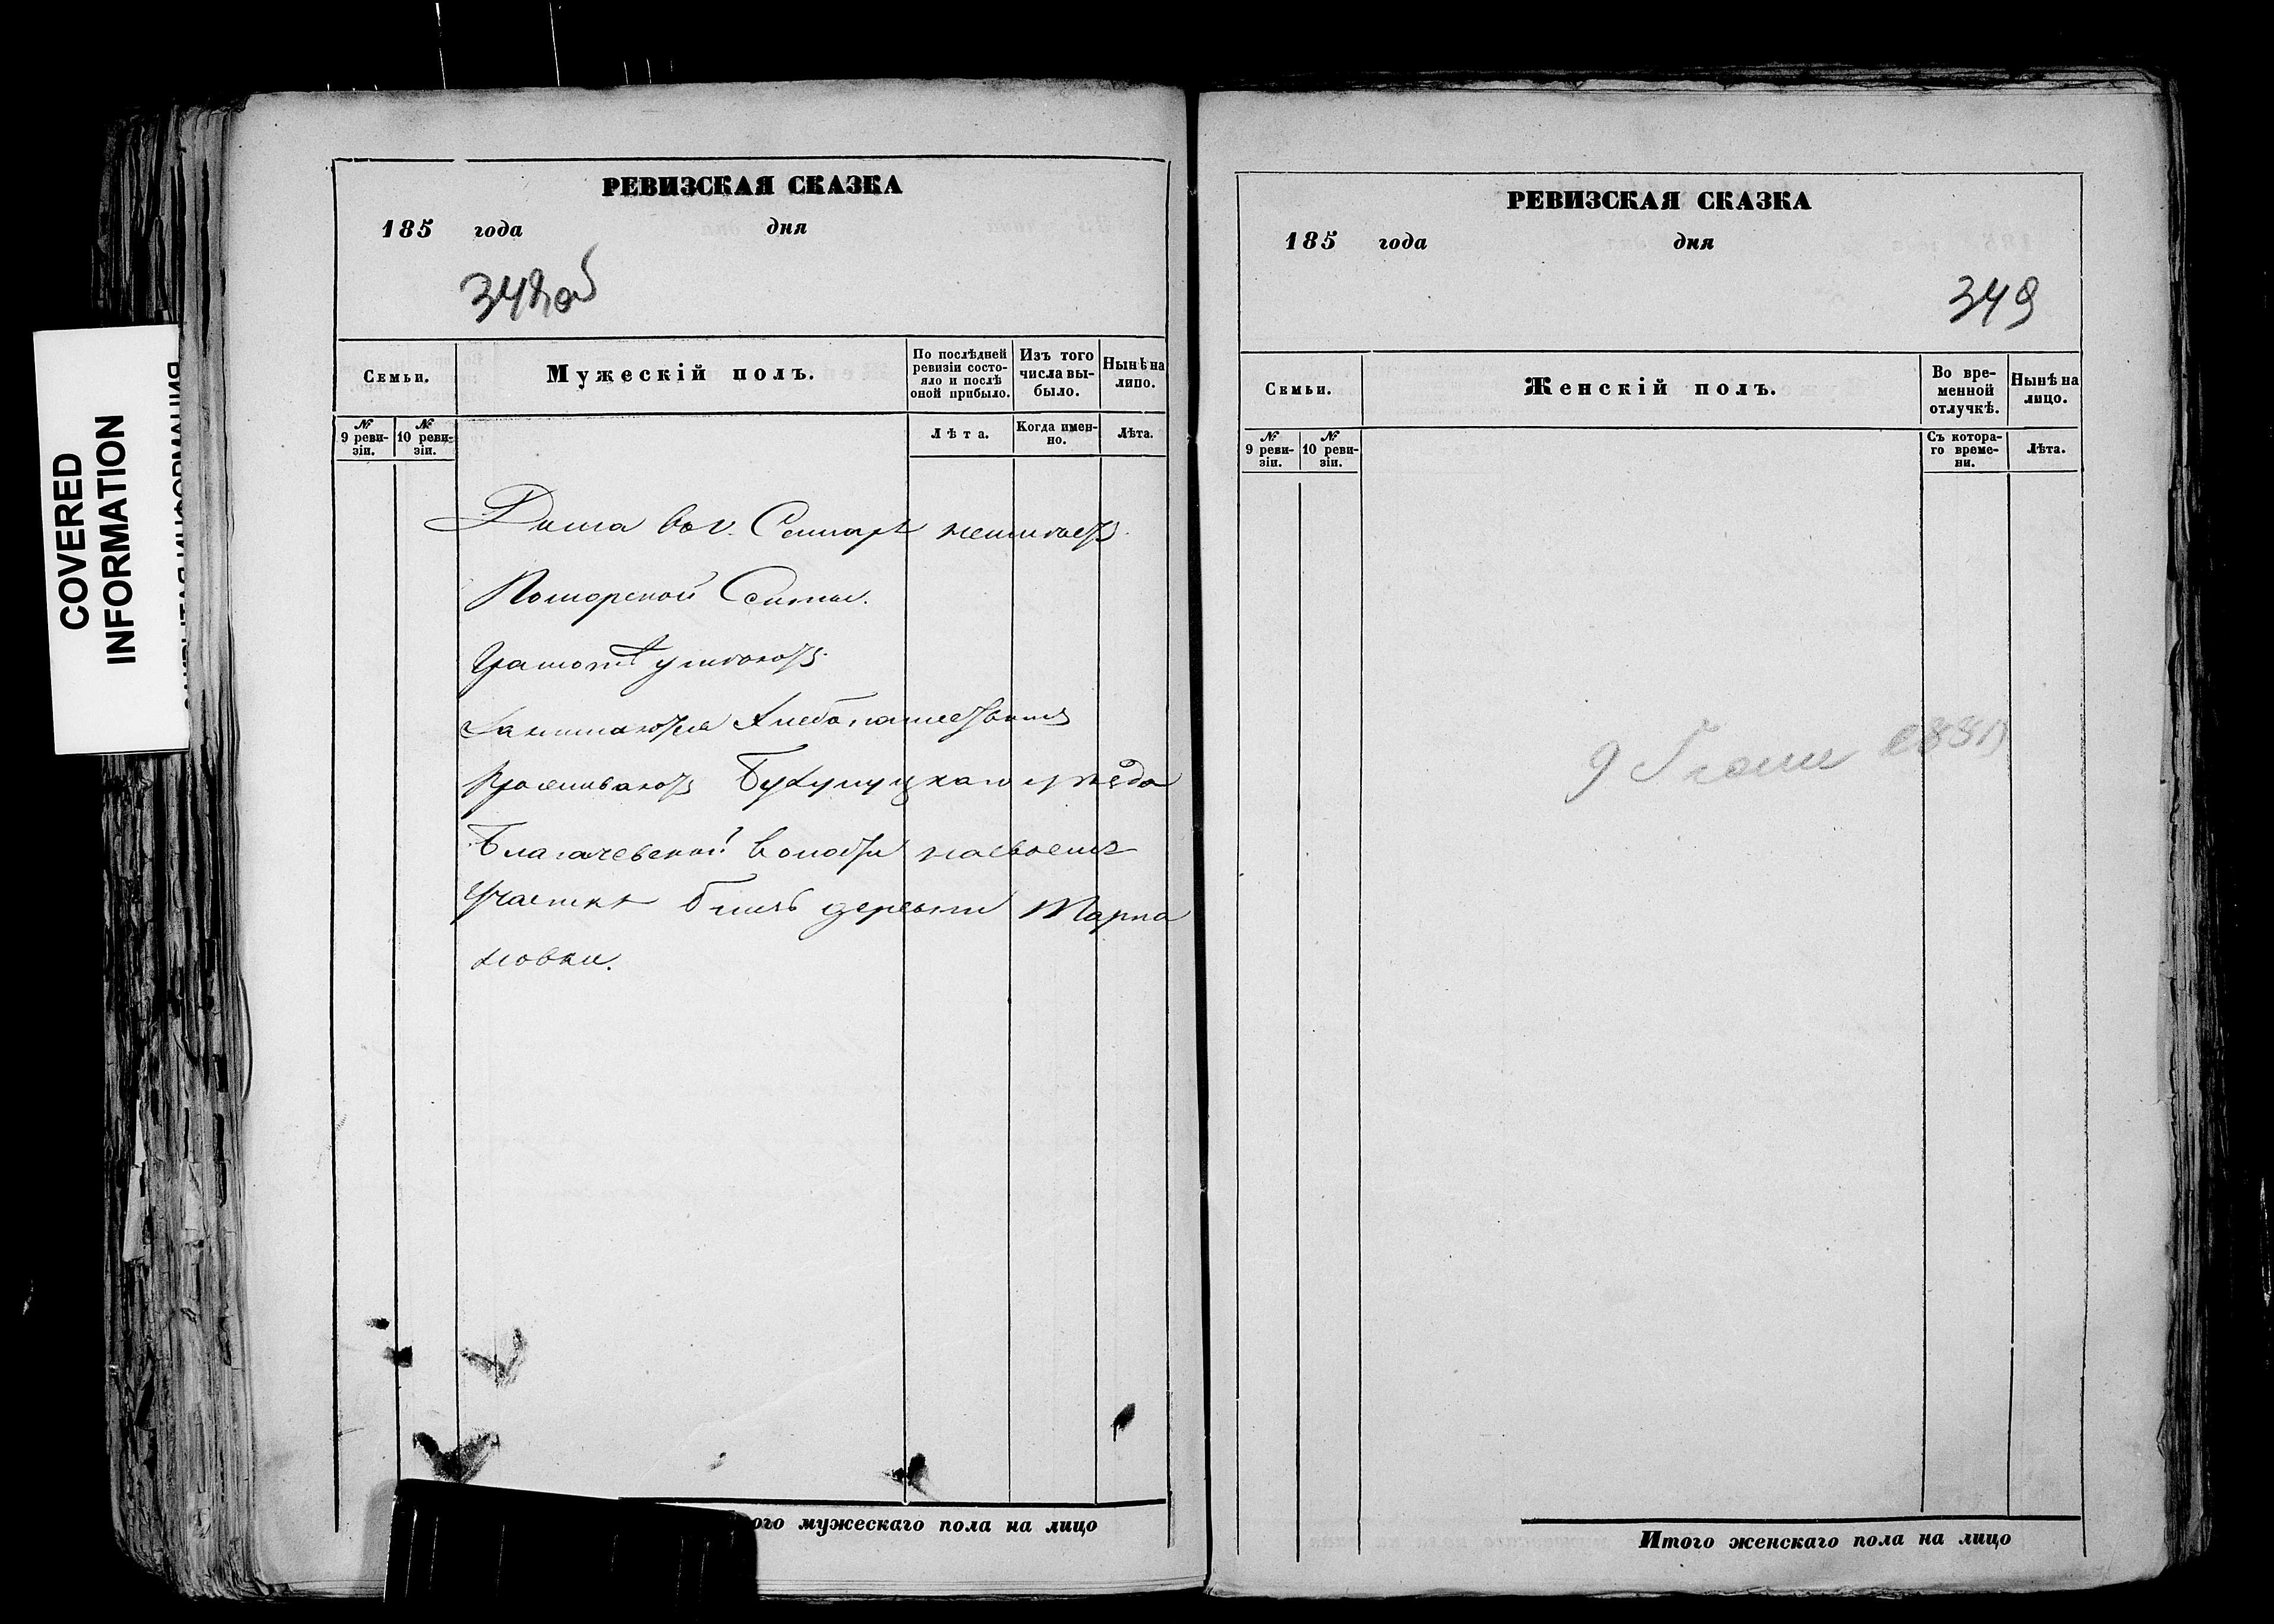 COVERED
INFORMATION
РЕВИЗСКАЯ СКАЗКА
185 года дня
348об
Семьи.
Мужескій полъ.
По послѣдней ревизіи состояло и послѣ оной прибыло.
Изъ того числа выбыло.
Нынѣ на лицо.
№ 9 ревизіи.
№ 10 ревизіи.
Лѣта.
Когда именно.
Лѣта.
Дома въ г. Самарѣ неимѣетъ
Поморской Секты.
Грамотѣ умѣютъ
Занимаются Хлебопашествомъ
Проживаютъ Бузулуцкаго уѣзда
волости насвоемъ
Участкѣ близь деревни
ловки.
ого мужескаго пола на лицо
РЕВИЗСКАЯ СКАЗКА
185 года дня
349
Семьи.
Женскій полъ.
Во временной отлучкѣ.
Нынѣ на лицо.
№ 9 ревизіи.
№ 10 ревизіи.
Съ котораго времени.
Лѣта.
9
Итого женскаго пола на лицо